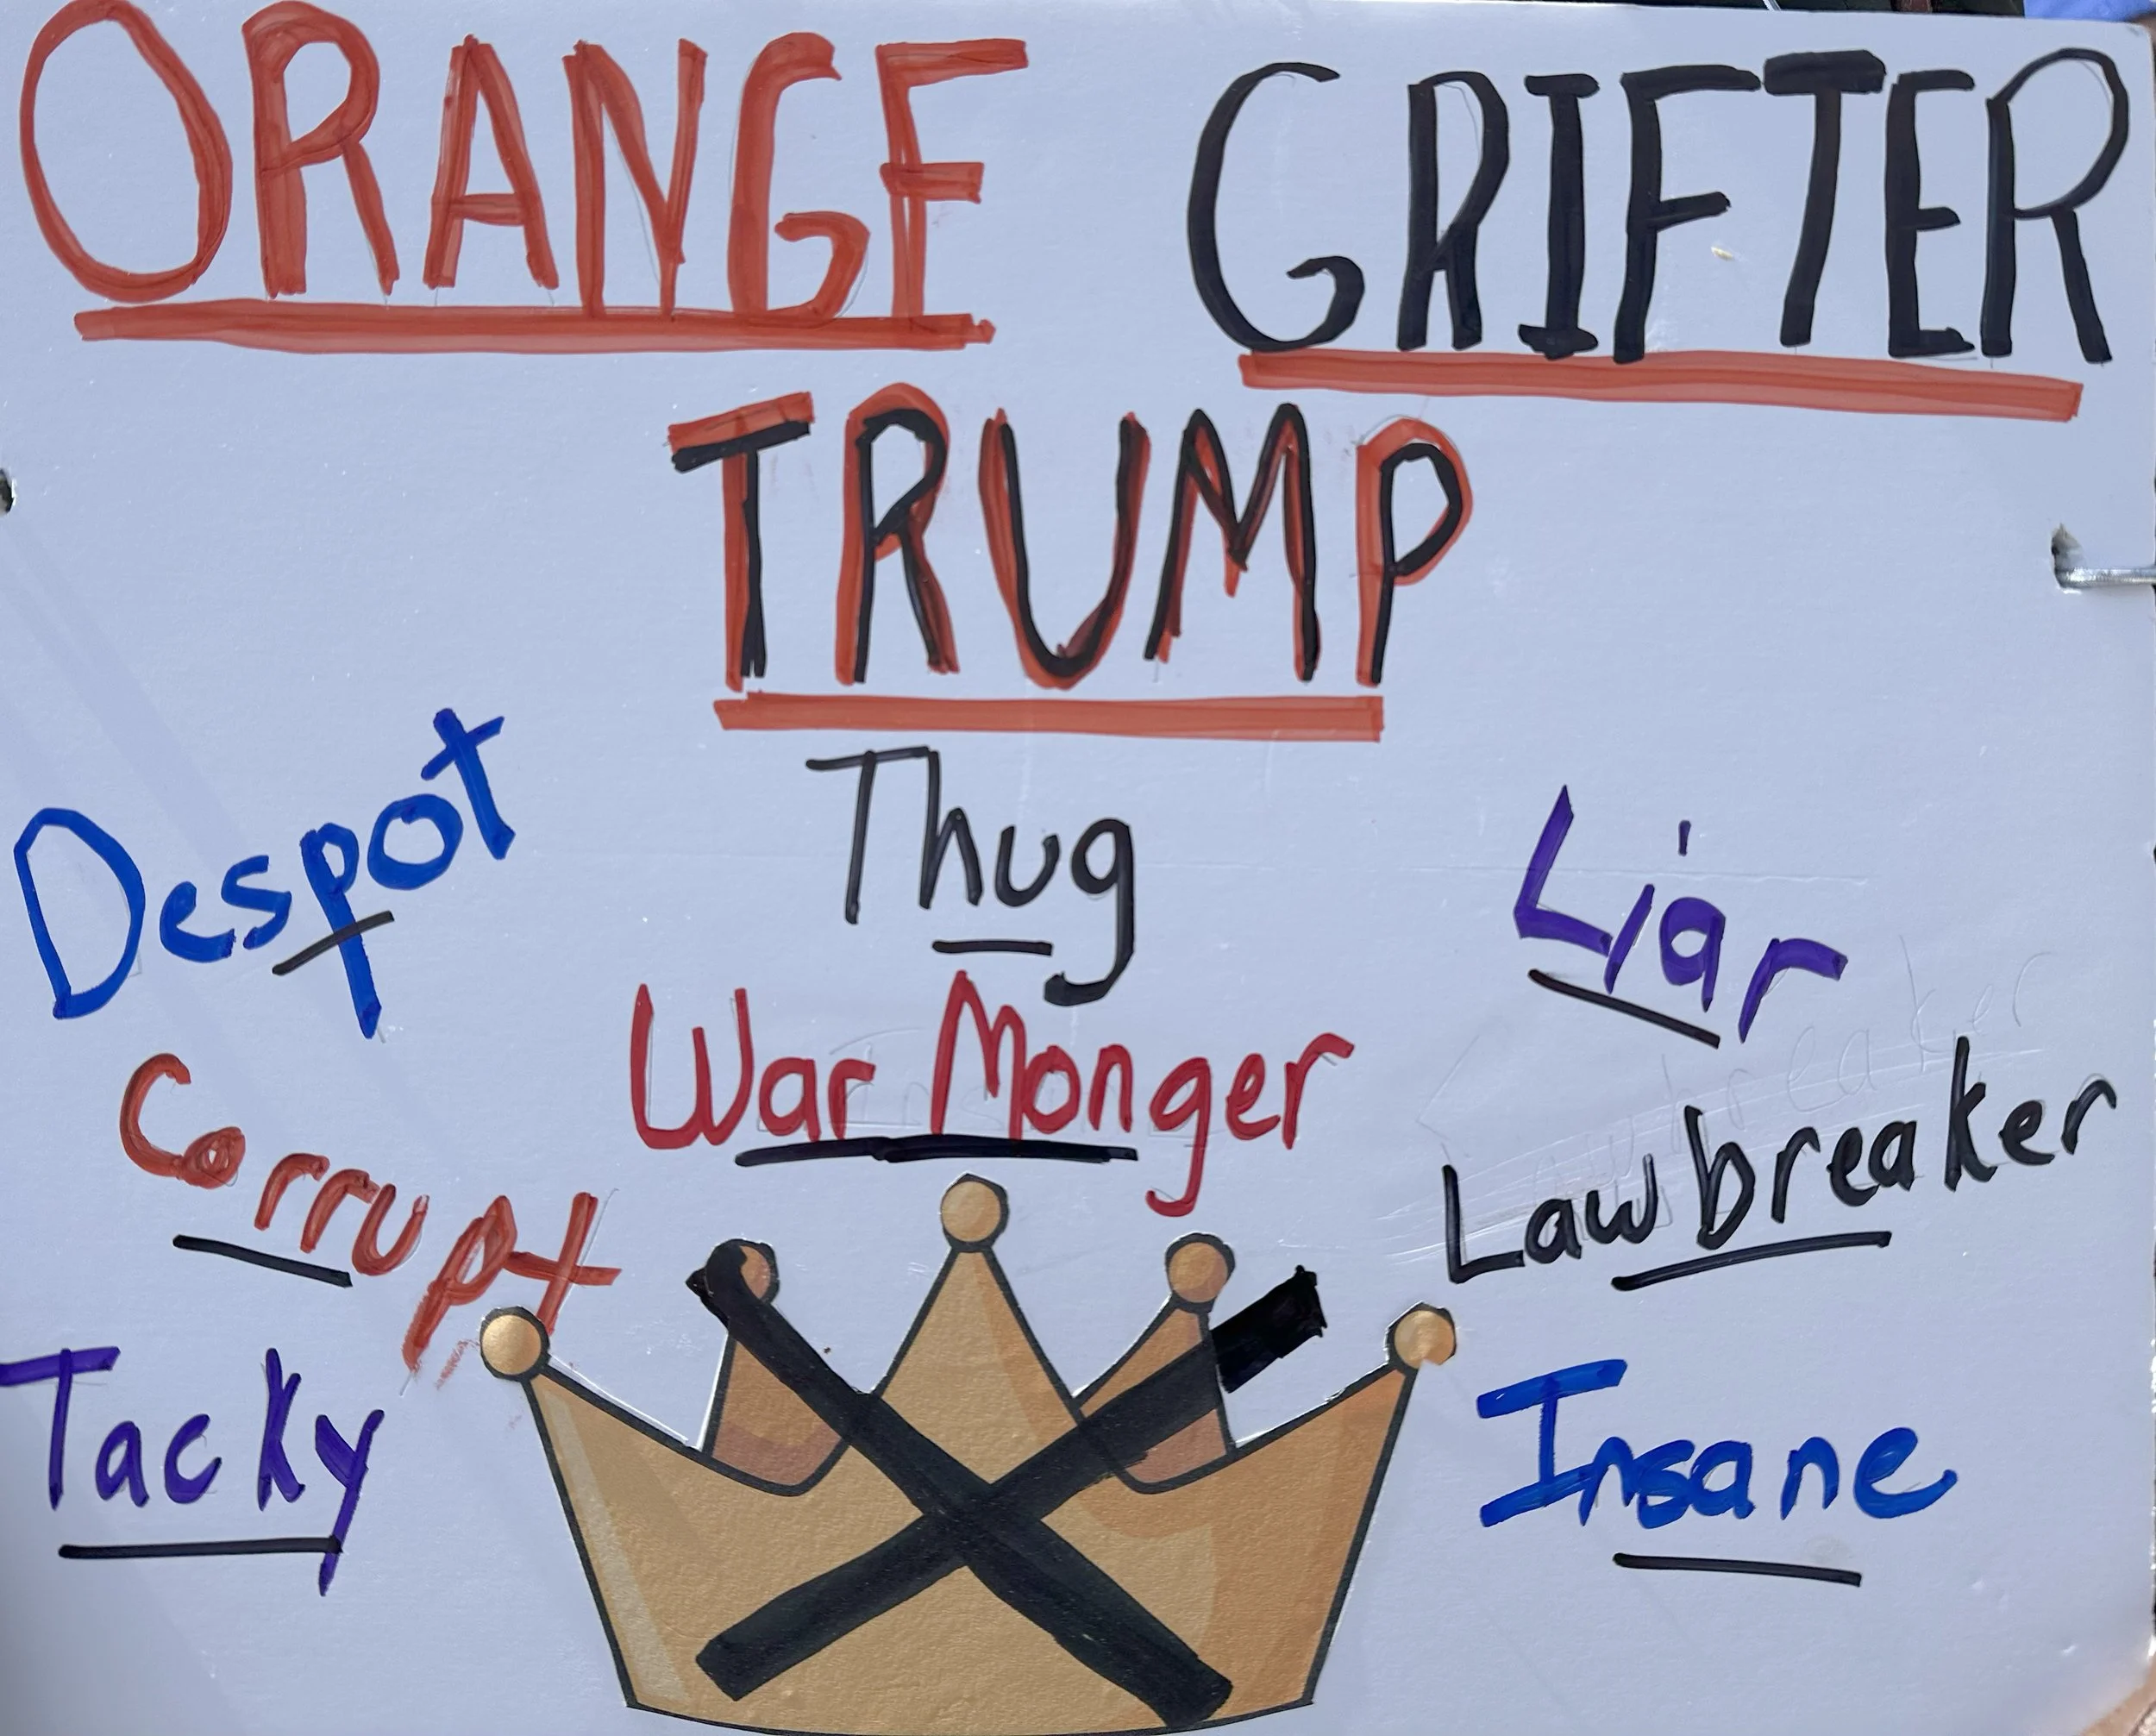 ORANGE GRIFTER
TRUMP
Thug
Despot
Liar
War Monger
Corrupt
Lawbreaker
Tacky
Insane